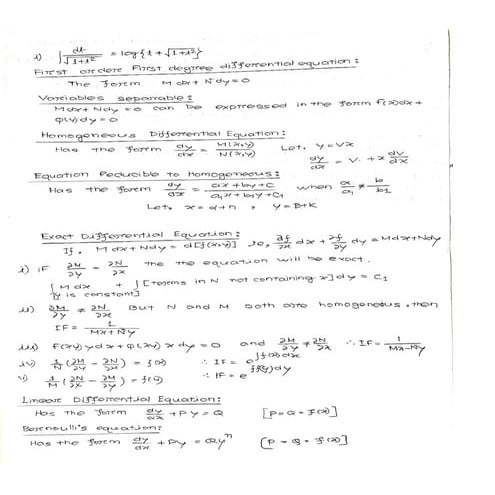 i) ∫ dt/√(1+t²) = log{t + √(1+t²)}
First order First degree differential equation:
The form Mdx + Ndy = 0
Variables separable:
Mdx + Ndy = 0 can be expressed in the form f(x)dx +
φ(y)dy = 0
Homogeneous Differential Equation:
Has the form dy/dx = M(x,y)/N(x,y) Let, y = Vx
dy/dx = V + x dv/dx
Equation Reducible to Homogeneous:
Has the form dy/dx = (ax+by+c)/(a₁x+b₁y+c₁) when a/a₁ ≠ b/b₁
Let, x = α+h, y = β+k
Exact Differential Equation:
If, Mdx + Ndy = d[f(x,y)] ie, ∂f/∂x dx + ∂f/∂y dy = Mdx+Ndy
i) if ∂M/∂y = ∂N/∂x the the equation will be exact.
∫ M dx + ∫ [terms in N not containing x] dy = C₁
[y is constant]
ii) ∂M/∂y ≠ ∂N/∂x But N and M both are homogeneous, then
IF = 1/(Mx+Ny)
iii) f(xy)ydx + φ(xy)xdy = 0 and ∂M/∂y ≠ ∂N/∂x ∴ IF = 1/(Mx-Ny)
iv) 1/N (∂M/∂y − ∂N/∂x) = f(x) ∴ IF = e^∫f(x)dx
v) 1/M (∂N/∂x − ∂M/∂y) = f(y) ∴ IF = e^∫f(y)dy
Linear Differential Equation:
Has the form dy/dx + Py = Q [P = Q = f(x)]
Berenoulli's equation:
Has the form dy/dx + Py = Qyⁿ [P = Q = f(x)]